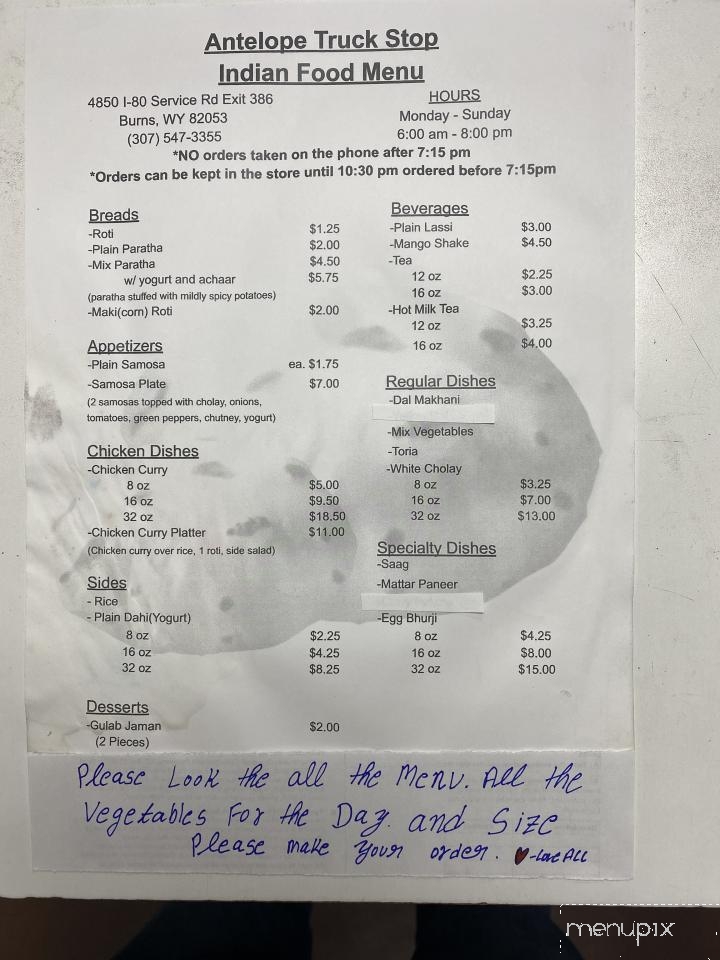 Antelope Truck Stop
Indian Food Menu
4850 I-80 Service Rd Exit 386
Burns, WY 82053
(307) 547-3355
HOURS
Monday - Sunday
6:00 am - 8:00 pm
*NO orders taken on the phone after 7:15 pm
*Orders can be kept in the store until 10:30 pm ordered before 7:15pm
Breads
-Roti $1.25
-Plain Paratha $2.00
-Mix Paratha $4.50
w/ yogurt and achaar $5.75
(paratha stuffed with mildly spicy potatoes)
-Maki(corn) Roti $2.00
Appetizers
-Plain Samosa ea. $1.75
-Samosa Plate $7.00
(2 samosas topped with cholay, onions,
tomatoes, green peppers, chutney, yogurt)
Chicken Dishes
-Chicken Curry
8 oz $5.00
16 oz $9.50
32 oz $18.50
-Chicken Curry Platter $11.00
(Chicken curry over rice, 1 roti, side salad)
Sides
- Rice
- Plain Dahi(Yogurt)
8 oz $2.25
16 oz $4.25
32 oz $8.25
Desserts
-Gulab Jaman $2.00
(2 Pieces)
Beverages
-Plain Lassi $3.00
-Mango Shake $4.50
-Tea
12 oz $2.25
16 oz $3.00
-Hot Milk Tea
12 oz $3.25
16 oz $4.00
Regular Dishes
-Dal Makhani
-Mix Vegetables
-Toria
-White Cholay
8 oz $3.25
16 oz $7.00
32 oz $13.00
Specialty Dishes
-Saag
-Mattar Paneer
-Egg Bhurji
8 oz $4.25
16 oz $8.00
32 oz $15.00
Please Look the all the Menu. All the
Vegetables For the Day and Size
Please make your order. ♥-Love ALL
menupix